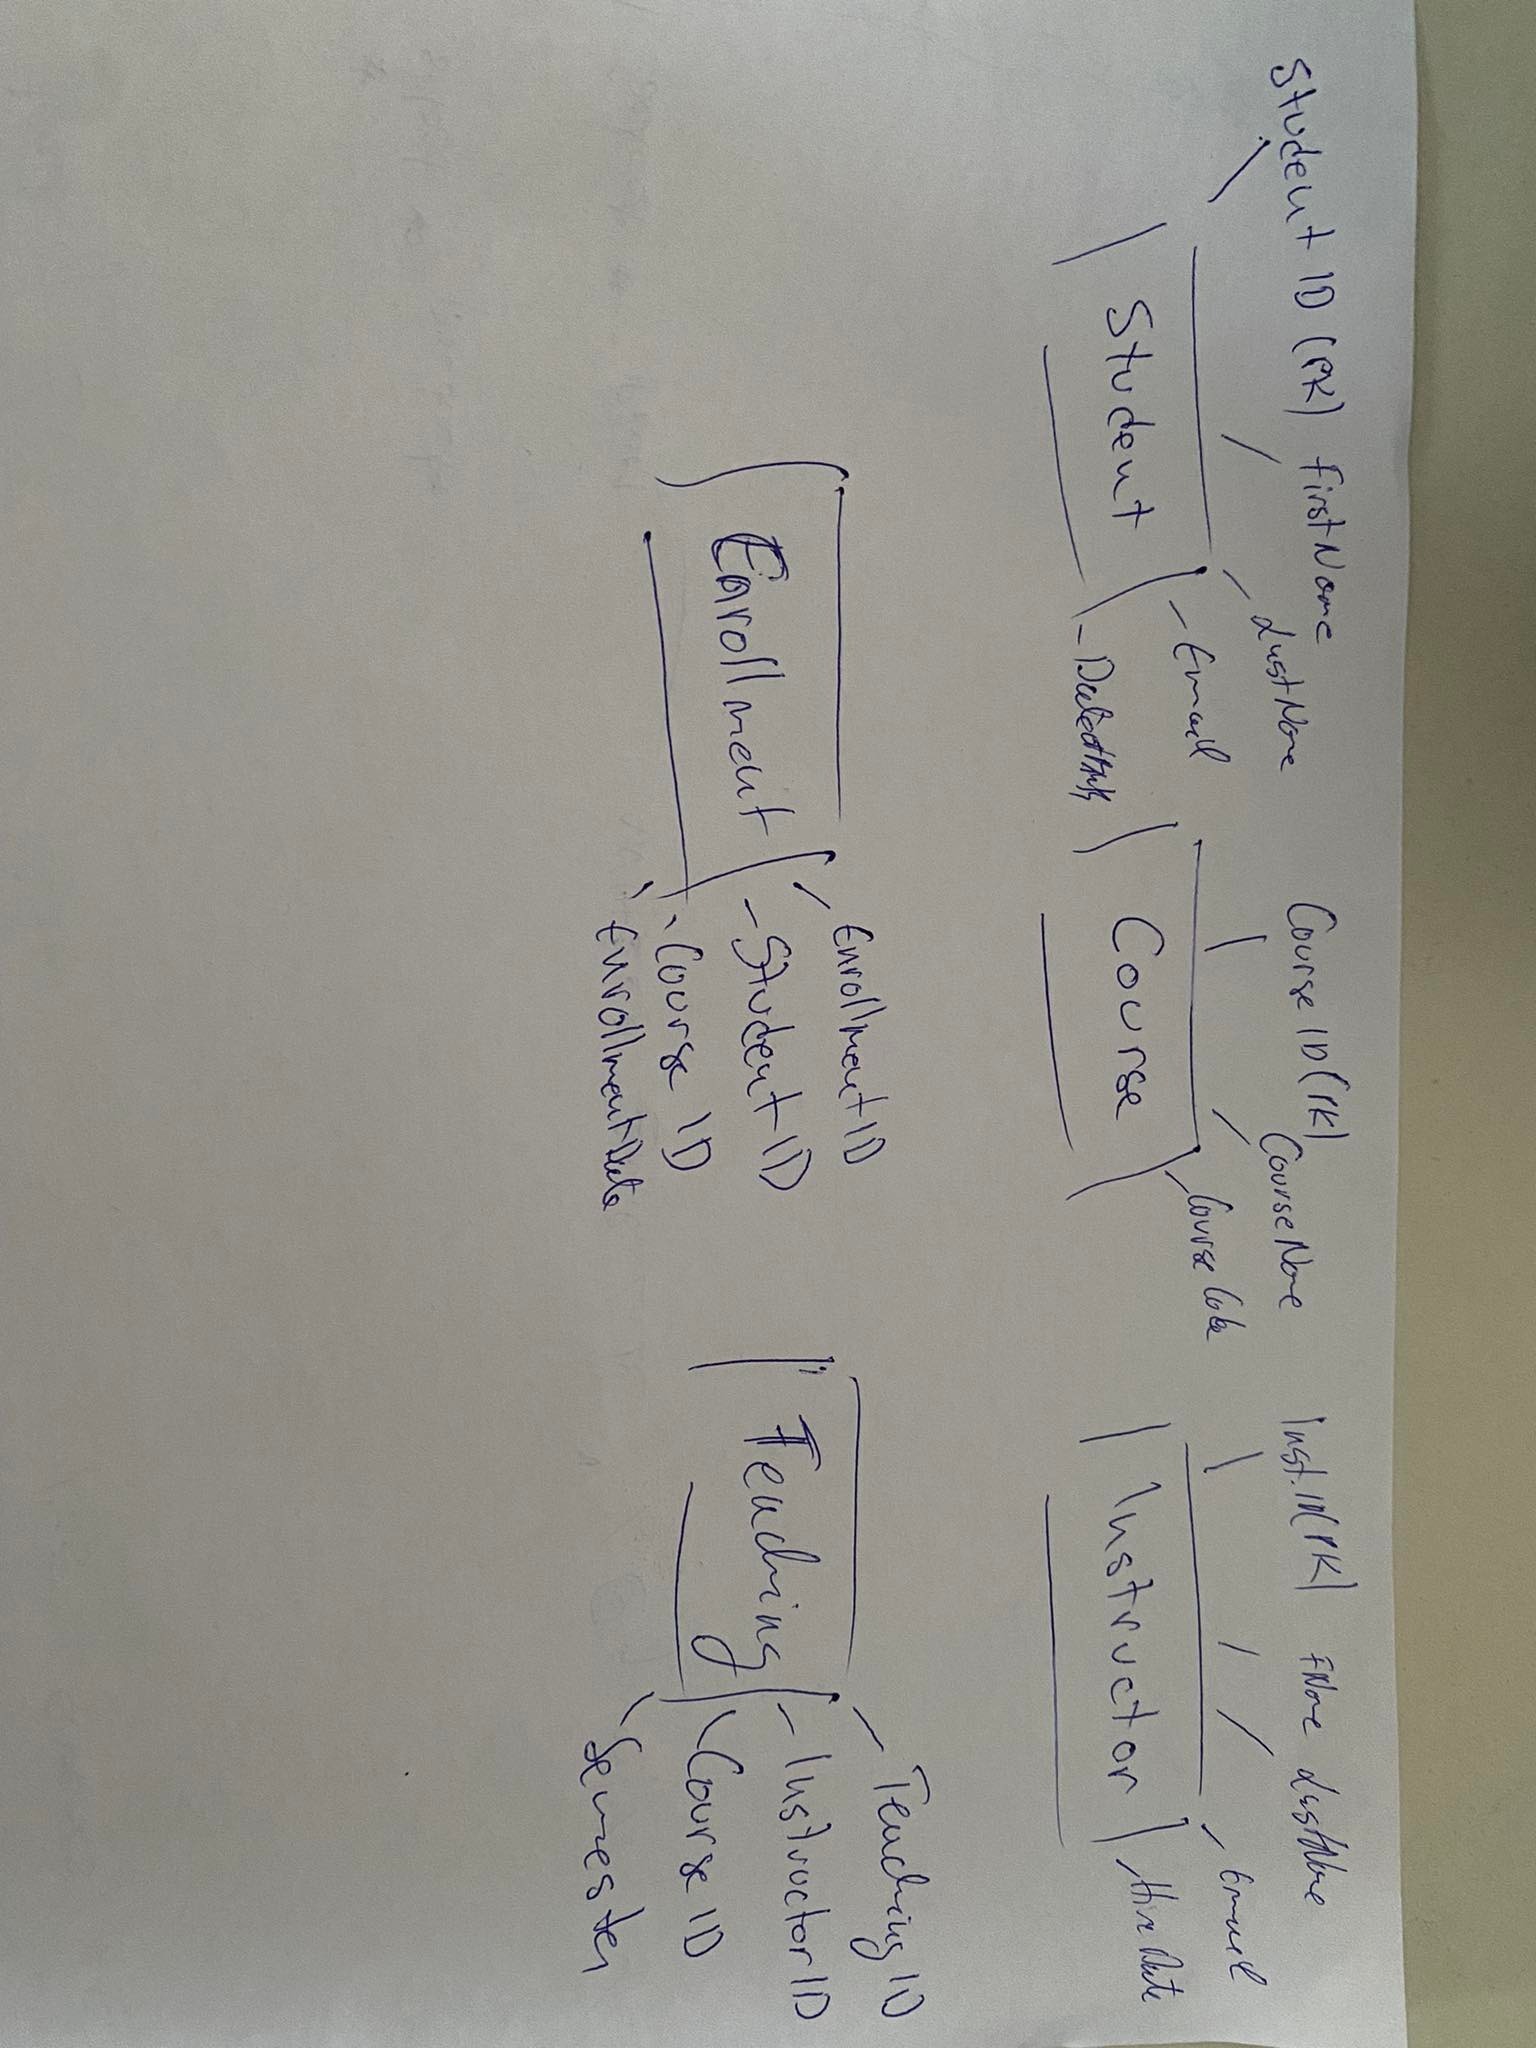 Student ID (PK) FirstName
LastName
Email
Student
Course ID (PK)
CourseName
Course Code
Course
Inst.ID(PK) FName LastName
Email
Hire Date
Instructor
Enrollment
EnrollmentID
Student ID
Course ID
EnrollmentDate
Teaching
Teaching ID
Instructor ID
Course ID
Semester